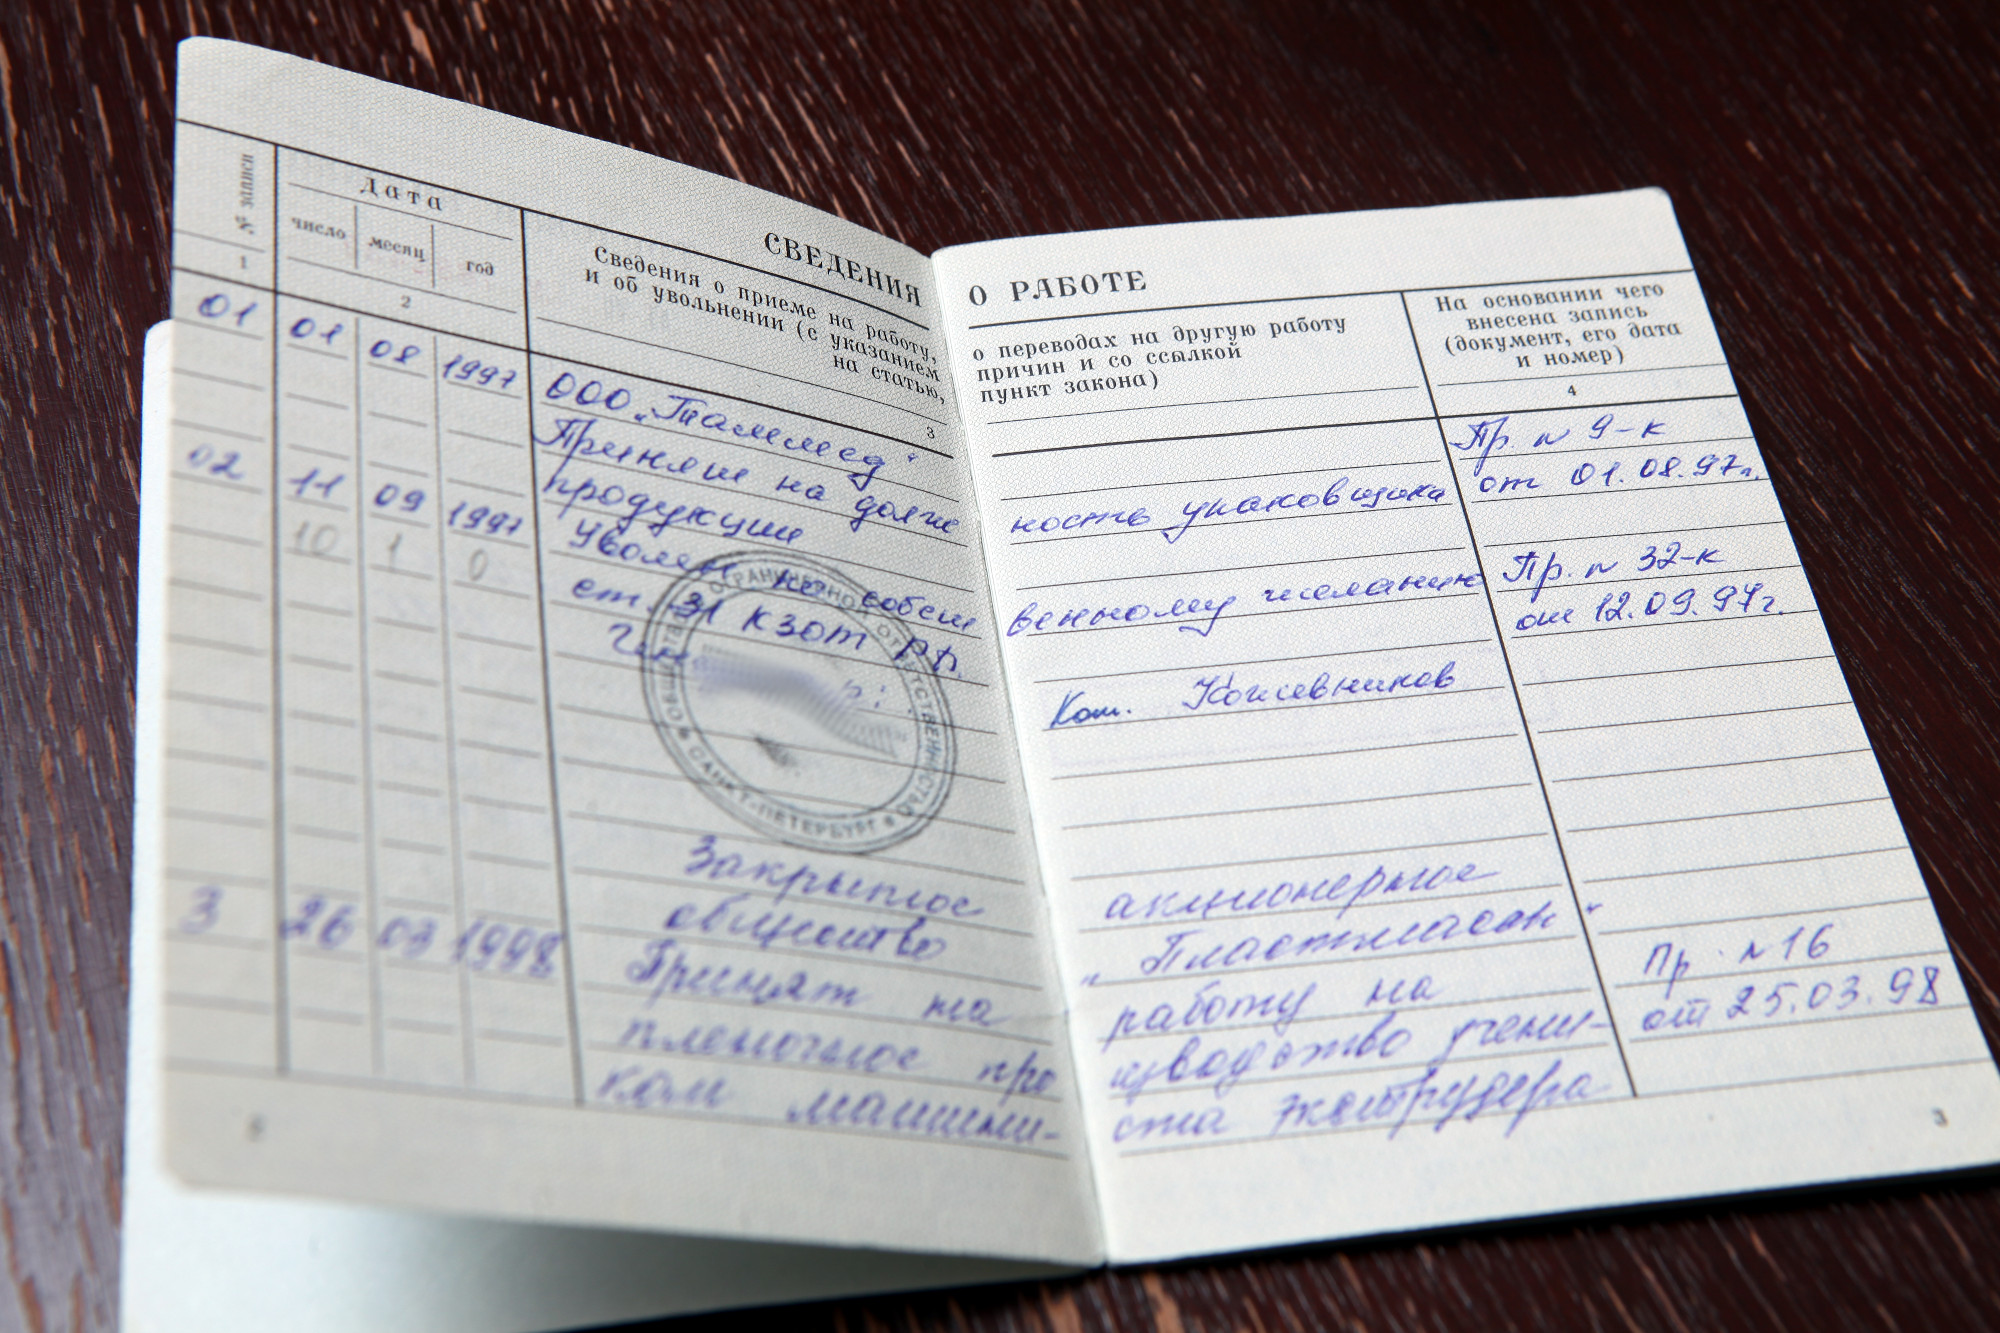 СВЕДЕНИЯ О РАБОТЕ
№ записи
Дата
число месяц год
Сведения о приеме на работу,
и об увольнении (с указанием
на статью,
о переводах на другую работу
причин и со ссылкой
пункт закона)
На основании чего
внесена запись
(документ, его дата
и номер)
1 2 3 4
ООО „Таммед"
01 01 08 1997 Принят на долж ность упаковщика Пр. № 9-к
продукции от 01.08.97г.
02 11 09 1997 Уволен по собст венному желанию Пр. № 32-к
10 1 0 ст. 31 КЗОТ РФ. от 12.09.97г.
Кот. Кожевников
ОГРАНИЧЕННОЙ ОТВЕТСТВЕННОСТЬЮ
САНКТ-ПЕТЕРБУРГ
Закрытое акционерное
общество „Пластмассы"
3 26 03 1998 Принят на работу на Пр. № 16
пленочное про изводство учени- от 25.03.98
ком машини- ста экструдера
3